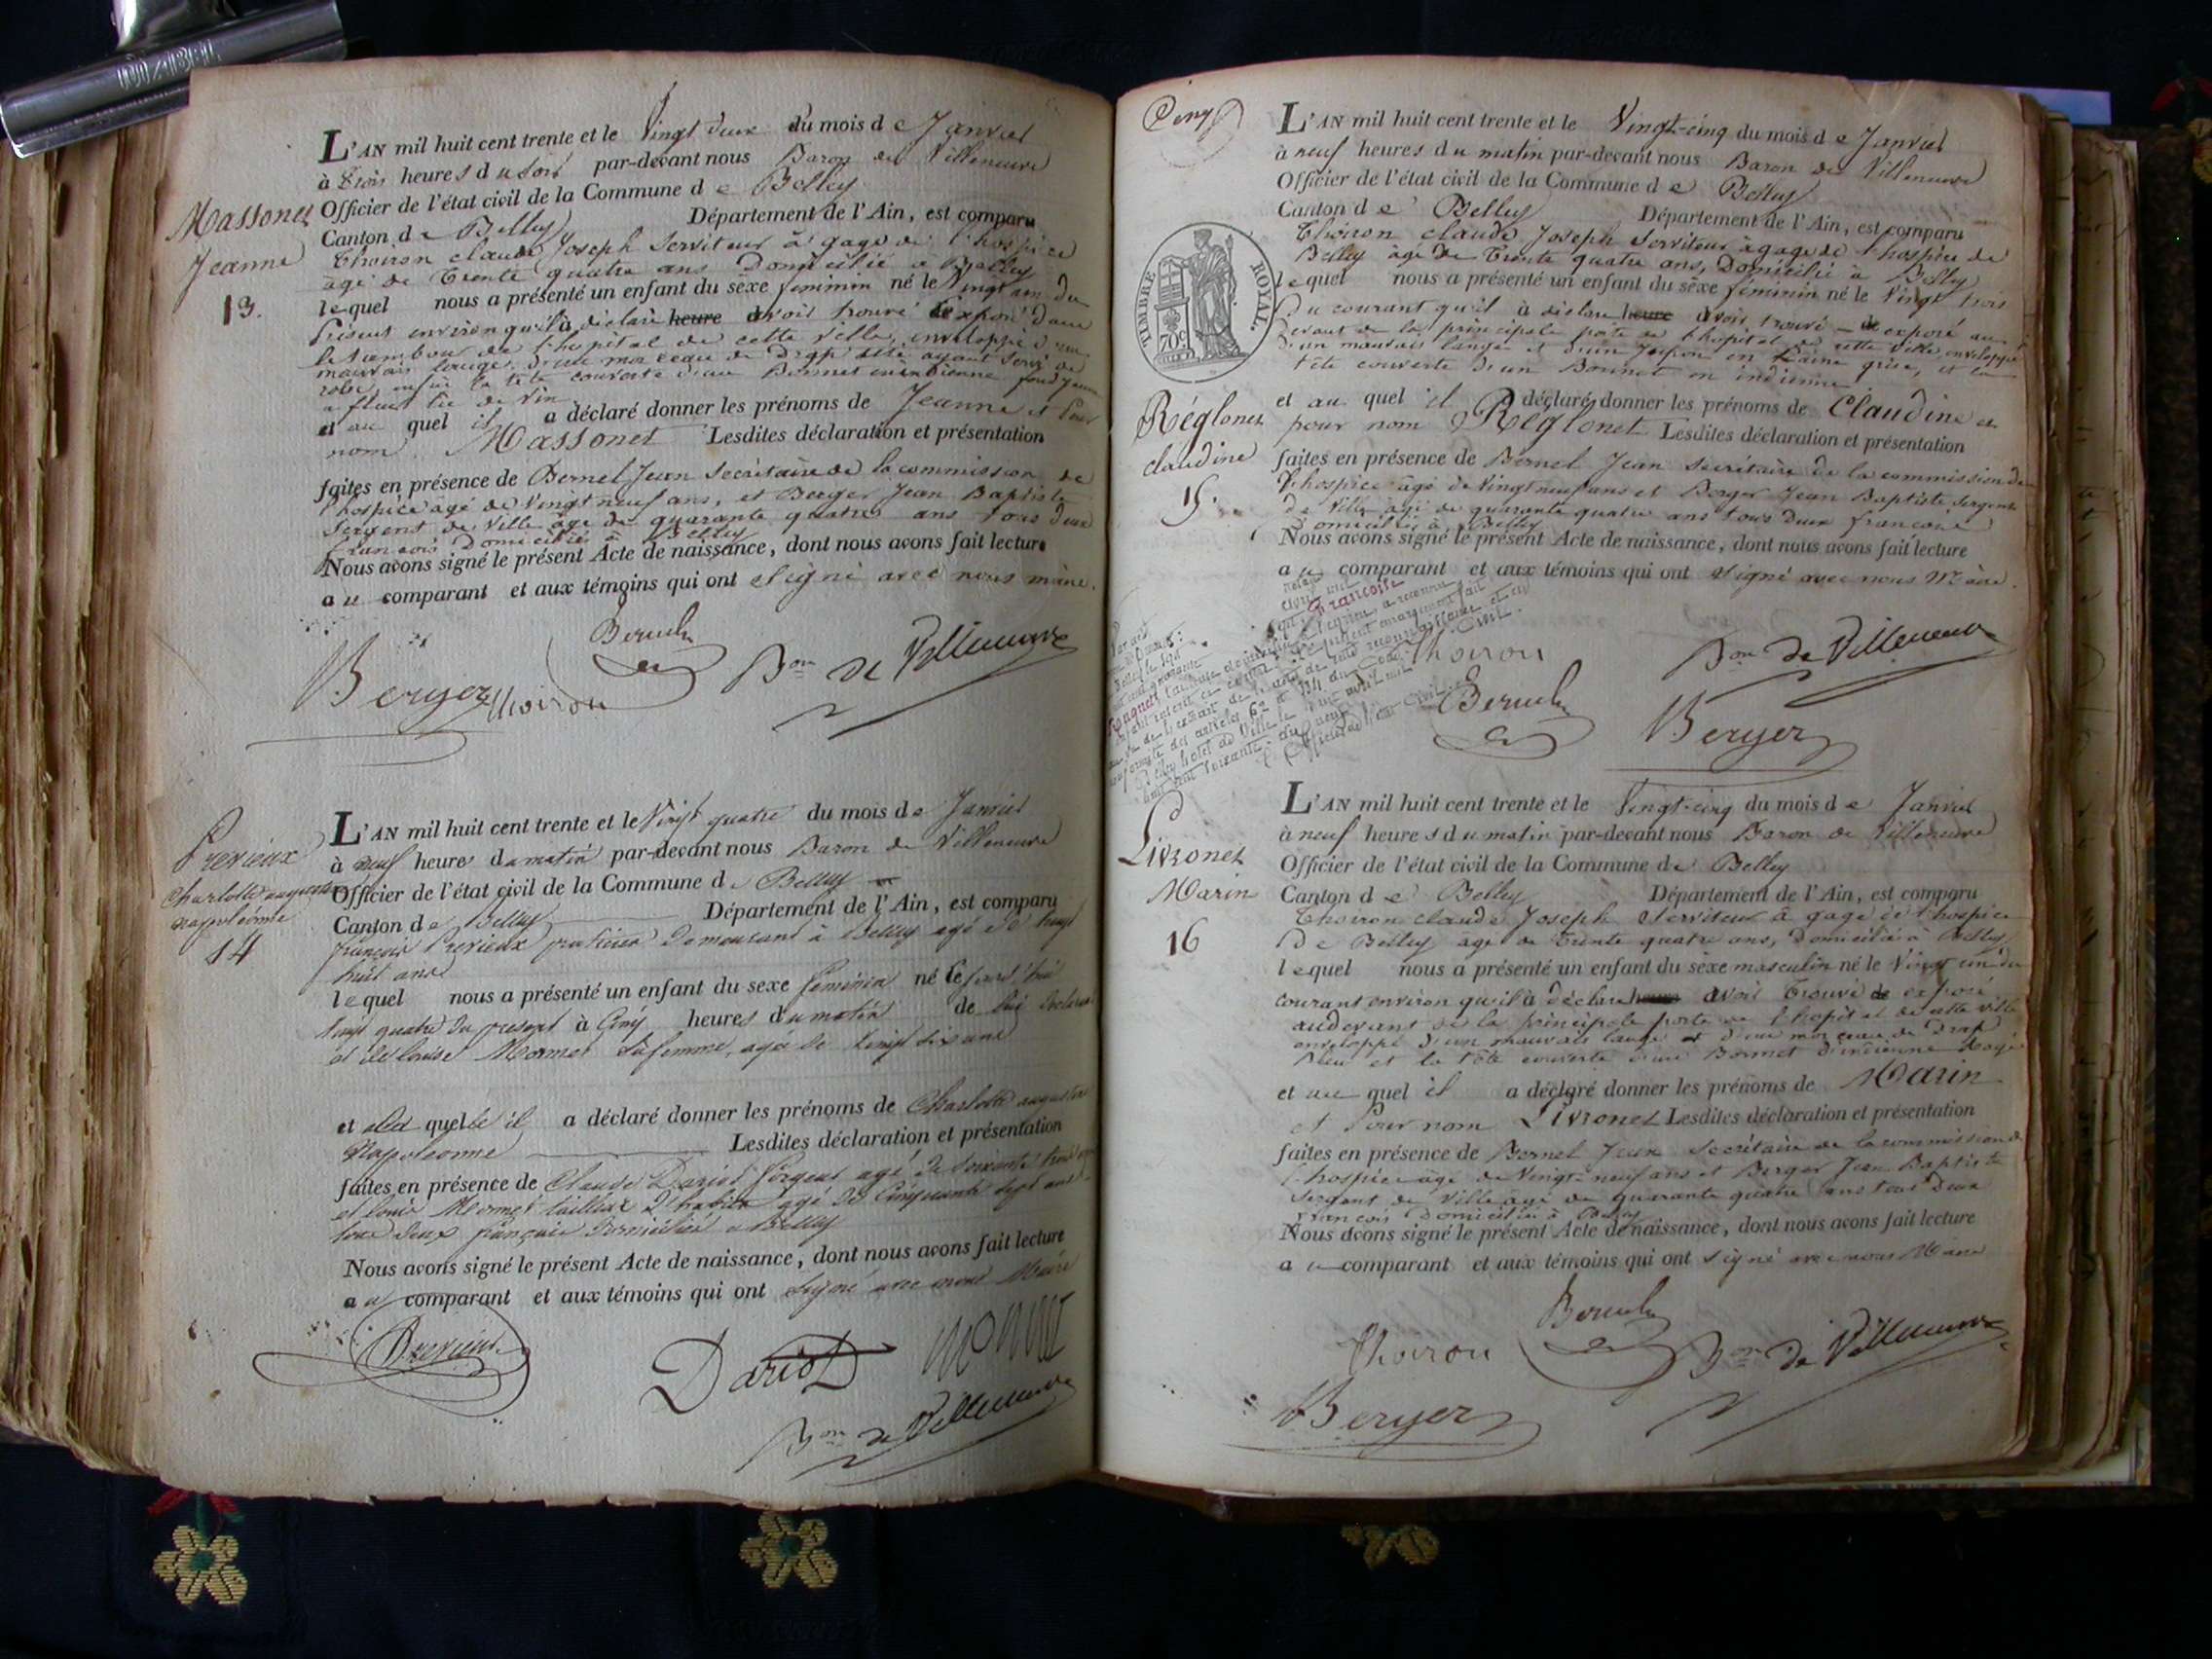 L'AN mil huit cent trente et le Vingt deux du mois de Janvier
à trois heures du soir par-devant nous Baron de Villeneuve
Officier de l'état civil de la Commune de Belley
Canton de Belley Département de l'Ain, est comparu
Thoiron claude Joseph Serviteur à gage de l'hospice
âgé de Trente quatre ans Domicilié à Belley
lequel nous a présenté un enfant du sexe feminin né le Vingt un du
présent environ qu'il à déclaré heure avoir trouvé exposé dans
le tambour de l'hopital de cette Ville, enveloppé d'un
mauvais lange, d'un morceau de Drap ayant servi de
robe, la tête couverte d'un Bonnet fond jaune
a fleur lie de Vin
et au quel il a déclaré donner les prénoms de Jeanne et Pour
nom Massonet Lesdites déclaration et présentation
faites en présence de Bernel Jean Secrétaire de la commission de
l'hospice âgé de Vingt neuf ans, et Berger Jean Baptiste
Sergent de Ville âgé de quarante quatre ans tous deux
francois Domiciliés à Belley
Nous avons signé le présent Acte de naissance, dont nous avons fait lecture
au comparant et aux témoins qui ont signé avec nous maire.
Massonet
Jeanne
13.
Berger Thoiron
Bon de Villeneuve
L'AN mil huit cent trente et le Vingt quatre du mois de Janvier
à neuf heures du matin par-devant nous Baron de Villeneuve
Officier de l'état civil de la Commune de Belley
Canton de Belley Département de l'Ain, est comparu
françois Prerieux praticien demeurant à Belley agé de
huit ans
lequel nous a présenté un enfant du sexe feminin né le
Vingt quatre du present à Cinq heures du matin de lui déclarant
et de louise Mormet sa femme, agée de Vingt six ans
et a la quelle il a déclaré donner les prénoms de Charlotte augustine
Napoleonne Lesdites déclaration et présentation
faites en présence de Claude Dariot Sergent agé de Soixante trois ans
et louis Mormet tailleur d'habits agé de Cinquante sept ans
tous deux français domiciliés a Belley
Nous avons signé le présent Acte de naissance, dont nous avons fait lecture
au comparant et aux témoins qui ont signé avec nous Maire
Prerieux
Charlotte augustine
napoléonne
14
Prerieux
Dariot
Bon de Villeneuve
Cinq
TIMBRE ROYAL.
70c
L'AN mil huit cent trente et le Vingt-cinq du mois de Janvier
à neuf heures du matin par-devant nous Baron de Villeneuve
Officier de l'état civil de la Commune de Belley
Canton de Belley Département de l'Ain, est comparu
Thoiron claude Joseph Serviteur à gage de l'hospice de
Belley âgé de Trente quatre ans, Domicilié à Belley
lequel nous a présenté un enfant du sexe féminin né le Vingt trois
Du courant qu'il à déclaré heure avoir trouvé de exposé au
Devant de la principale porte de l'hopital de cette Ville, enveloppé
D'un mauvais lange et d'un Jupon en Laine grise, et la
tête couverte d'un Bonnet en indienne
et au quel il a déclaré donner les prénoms de Claudine et
pour nom Réglonet Lesdites déclaration et présentation
faites en présence de Bernel Jean Secrétaire de la commission de
l'hospice âgé de Vingt neuf ans et Berger Jean Baptiste Sergent
de Ville âgé de quarante quatre ans tous deux francois
Domiciliés à Belley
Nous avons signé le présent Acte de naissance, dont nous avons fait lecture
au comparant et aux témoins qui ont signé avec nous Maire.
Réglonet
claudine
15.
Thoiron
Bon de Villeneuve
Berger
L'AN mil huit cent trente et le Vingt-cinq du mois de Janvier
à neuf heures du matin par-devant nous Baron de Villeneuve
Officier de l'état civil de la Commune de Belley
Canton de Belley Département de l'Ain, est comparu
Thoiron claude Joseph Serviteur à gage de l'hospice
De Belley âgé de Trente quatre ans, Domicilié à Belley
lequel nous a présenté un enfant du sexe masculin né le Vingt un du
courant environ qu'il à déclaré heures avoir Trouvé de exposé
au devant de la principale porte de l'hopital de cette Ville
enveloppé d'un mauvais lange et d'un morceau de Drap
Bleu et la tête couverte d'un Bonnet d'indienne Rayé
et au quel il a déclaré donner les prénoms de Marin
et Pour nom Livronet Lesdites déclaration et présentation
faites en présence de Bernel Jean Secrétaire de la commission de
l'hospice âgé de Vingt neuf ans et Berger Jean Baptiste
Sergent de Ville âgé de quarante quatre ans tous deux
francois Domiciliés à Belley
Nous avons signé le présent Acte de naissance, dont nous avons fait lecture
au comparant et aux témoins qui ont signé avec nous Maire
Livronet
Marin
16
Thoiron
Bon de Villeneuve
Berger